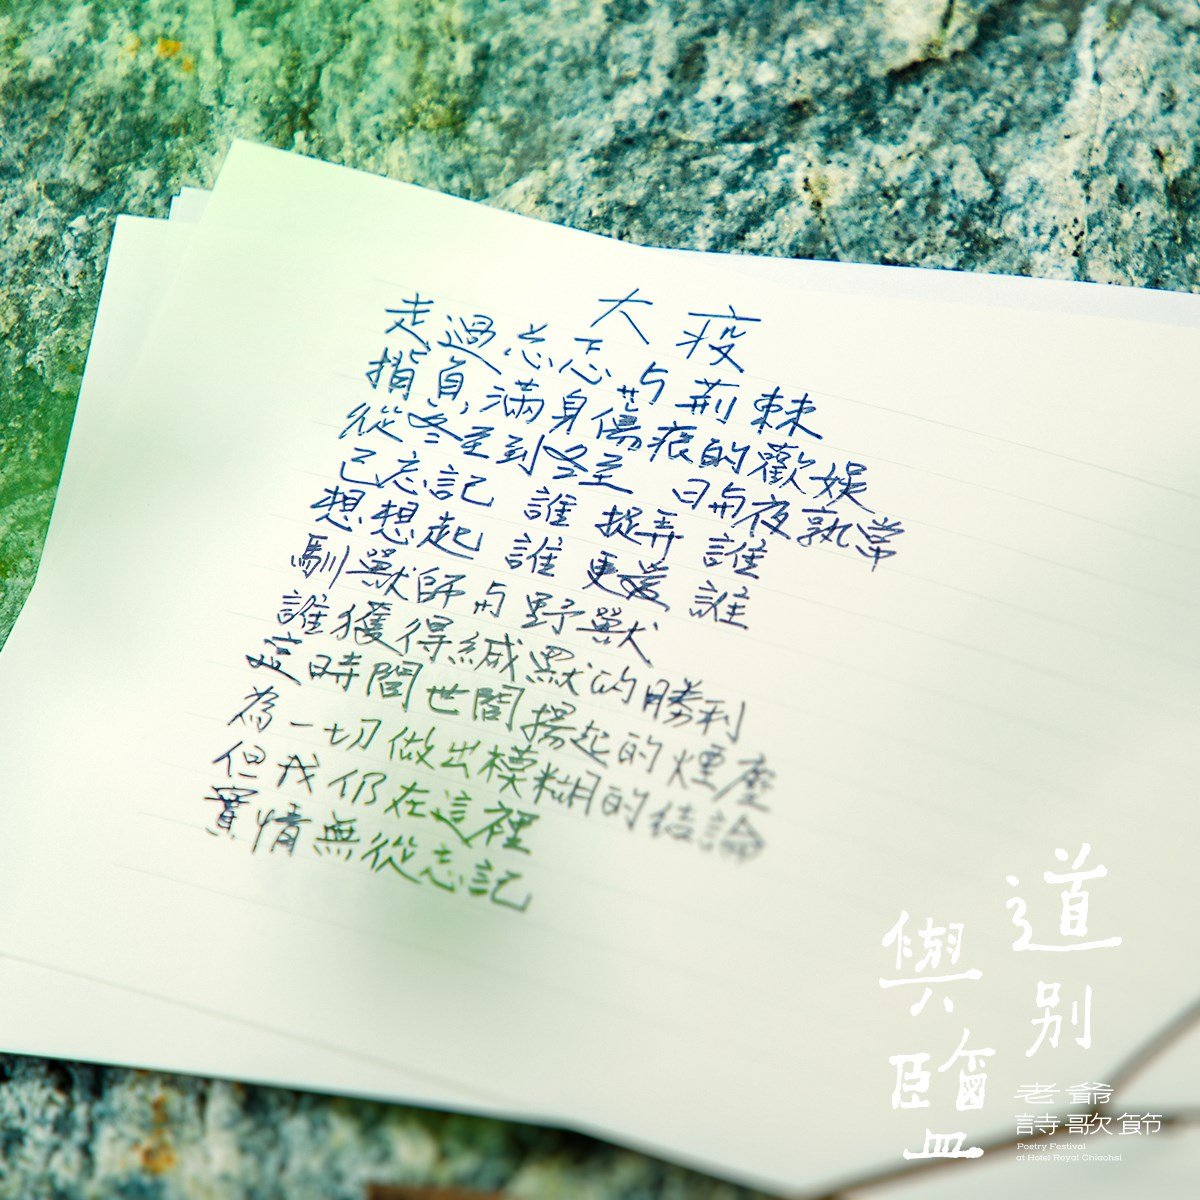 大疫
走過忐忑与荊棘
揹負滿身傷痕的歡娱
從冬至到冬至 日与夜孰常
已忘記 誰 捉弄 誰
想想起 誰 更爱 誰
馴獸師与野獸
誰獲得緘默的勝利
這時間世間揚起的煙塵
為一切做出模糊的結論
但我仍在這裡
實情無從忘記
道別
與鹽
老爺
詩歌節
Poetry Festival
at Hotel Royal Chiaohsi